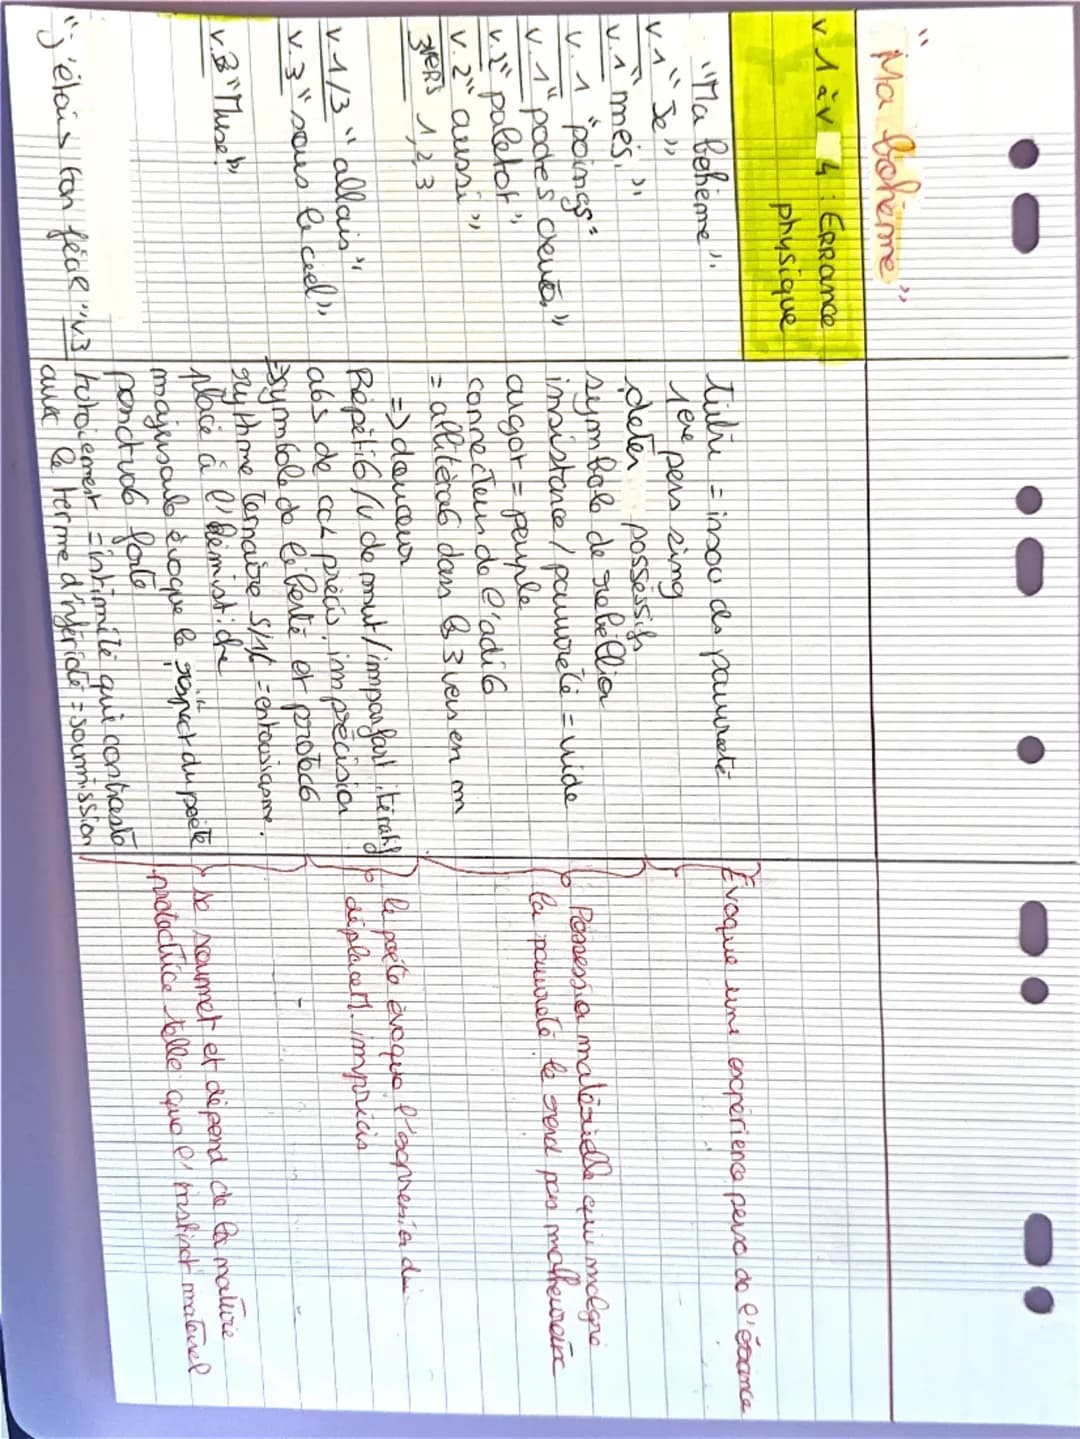 "Ma bohème"
v 1 à v 4 : ERRance
physique
"Ma bohème".
v.1 "Je"
v.1 "mes."
v.1 "poings"
v.1 "poches crevées"
v.2 "paletot"
v.2 "aussi"
VERS 1,2,3
v.1/3 "allais"
v.3 "sous le ciel"
v.3 "Muse!"
"j'étais ton féal" v.3
Titre = insou de pauvreté
1ère pers sing
déter possessifs
symbole de rebéllion
insistance / pauvreté = vide
argot = peuple
connecteur de l'adi6
= allitéra6 dans les 3 vers en m
=> douceur
Répéti6 / v de mvt / imparfait itératif
abs de cot précis, imprécision
=> symbole de liberté et protec6
rythme ternaire = entousiasme.
placé à l'hémistiche
majuscule évoque le respect du poète
ponctua6 forte
tutoiement = intimité qui contraste
avec le terme d'inférité = soumission
Évoque une expérience perso de l'érrance
Possession matérielle qui malgré
la pauvreté le rend pas malheureux
le poète évoque l'expression du
déplacem imprécis
se soumet et dépend de la nature
protectrice telle que l'instinct maternel